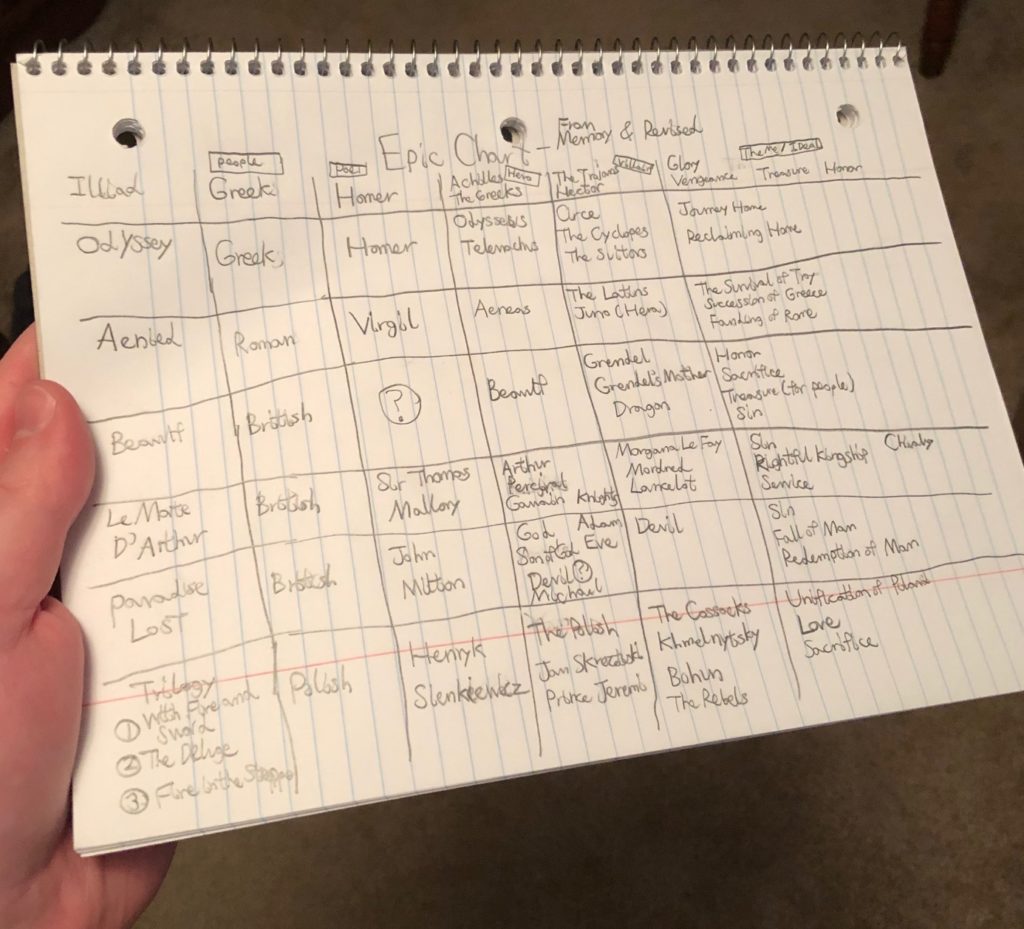 Epic Chart - From Memory & Revised
People
Poet
Hero
Villain
Theme/Ideal
Illiad
Greek
Homer
Achilles
The Greeks
The Trojans
Hector
Gloy
Vengeance Treasure Honor
Odyssey
Greek
Homer
Odysseus
Telemachus
Circe
The Cyclopes
The Suitors
Journey Home
Reclaiming Home
Aenied
Roman
Virgil
Aeneas
The Latins
Juno (Hera)
The Survival of Troy
Succession of Greece
Founding of Rome
Beowulf
British
?
Beowulf
Grendel
Grendel's Mother
Dragon
Honor
Sacrifice
Treasure (for people)
Sin
Le Morte
D'Arthur
British
Sir Thomas
Mallory
Arthur
Percival
Gawain Knights
Morgana Le Fay
Mordred
Lancelot
Sin
Rightful Kingship Chivalry
Service
Paradise
Lost
British
John
Milton
God Adam
Son of God Eve
Devil ?
Michael
Devil
Sin
Fall of Man
Redemption of Man
Trilogy
1 With Fire and
Sword
2 The Deluge
3 Fire in the Steppe
Polish
Henryk
Sienkiewicz
The Polish
Jan Skrzetuski
Prince Jeremi
The Cossacks
Khmelnytsky
Bohun
The Rebels
Unification of Poland
Love
Sacrifice